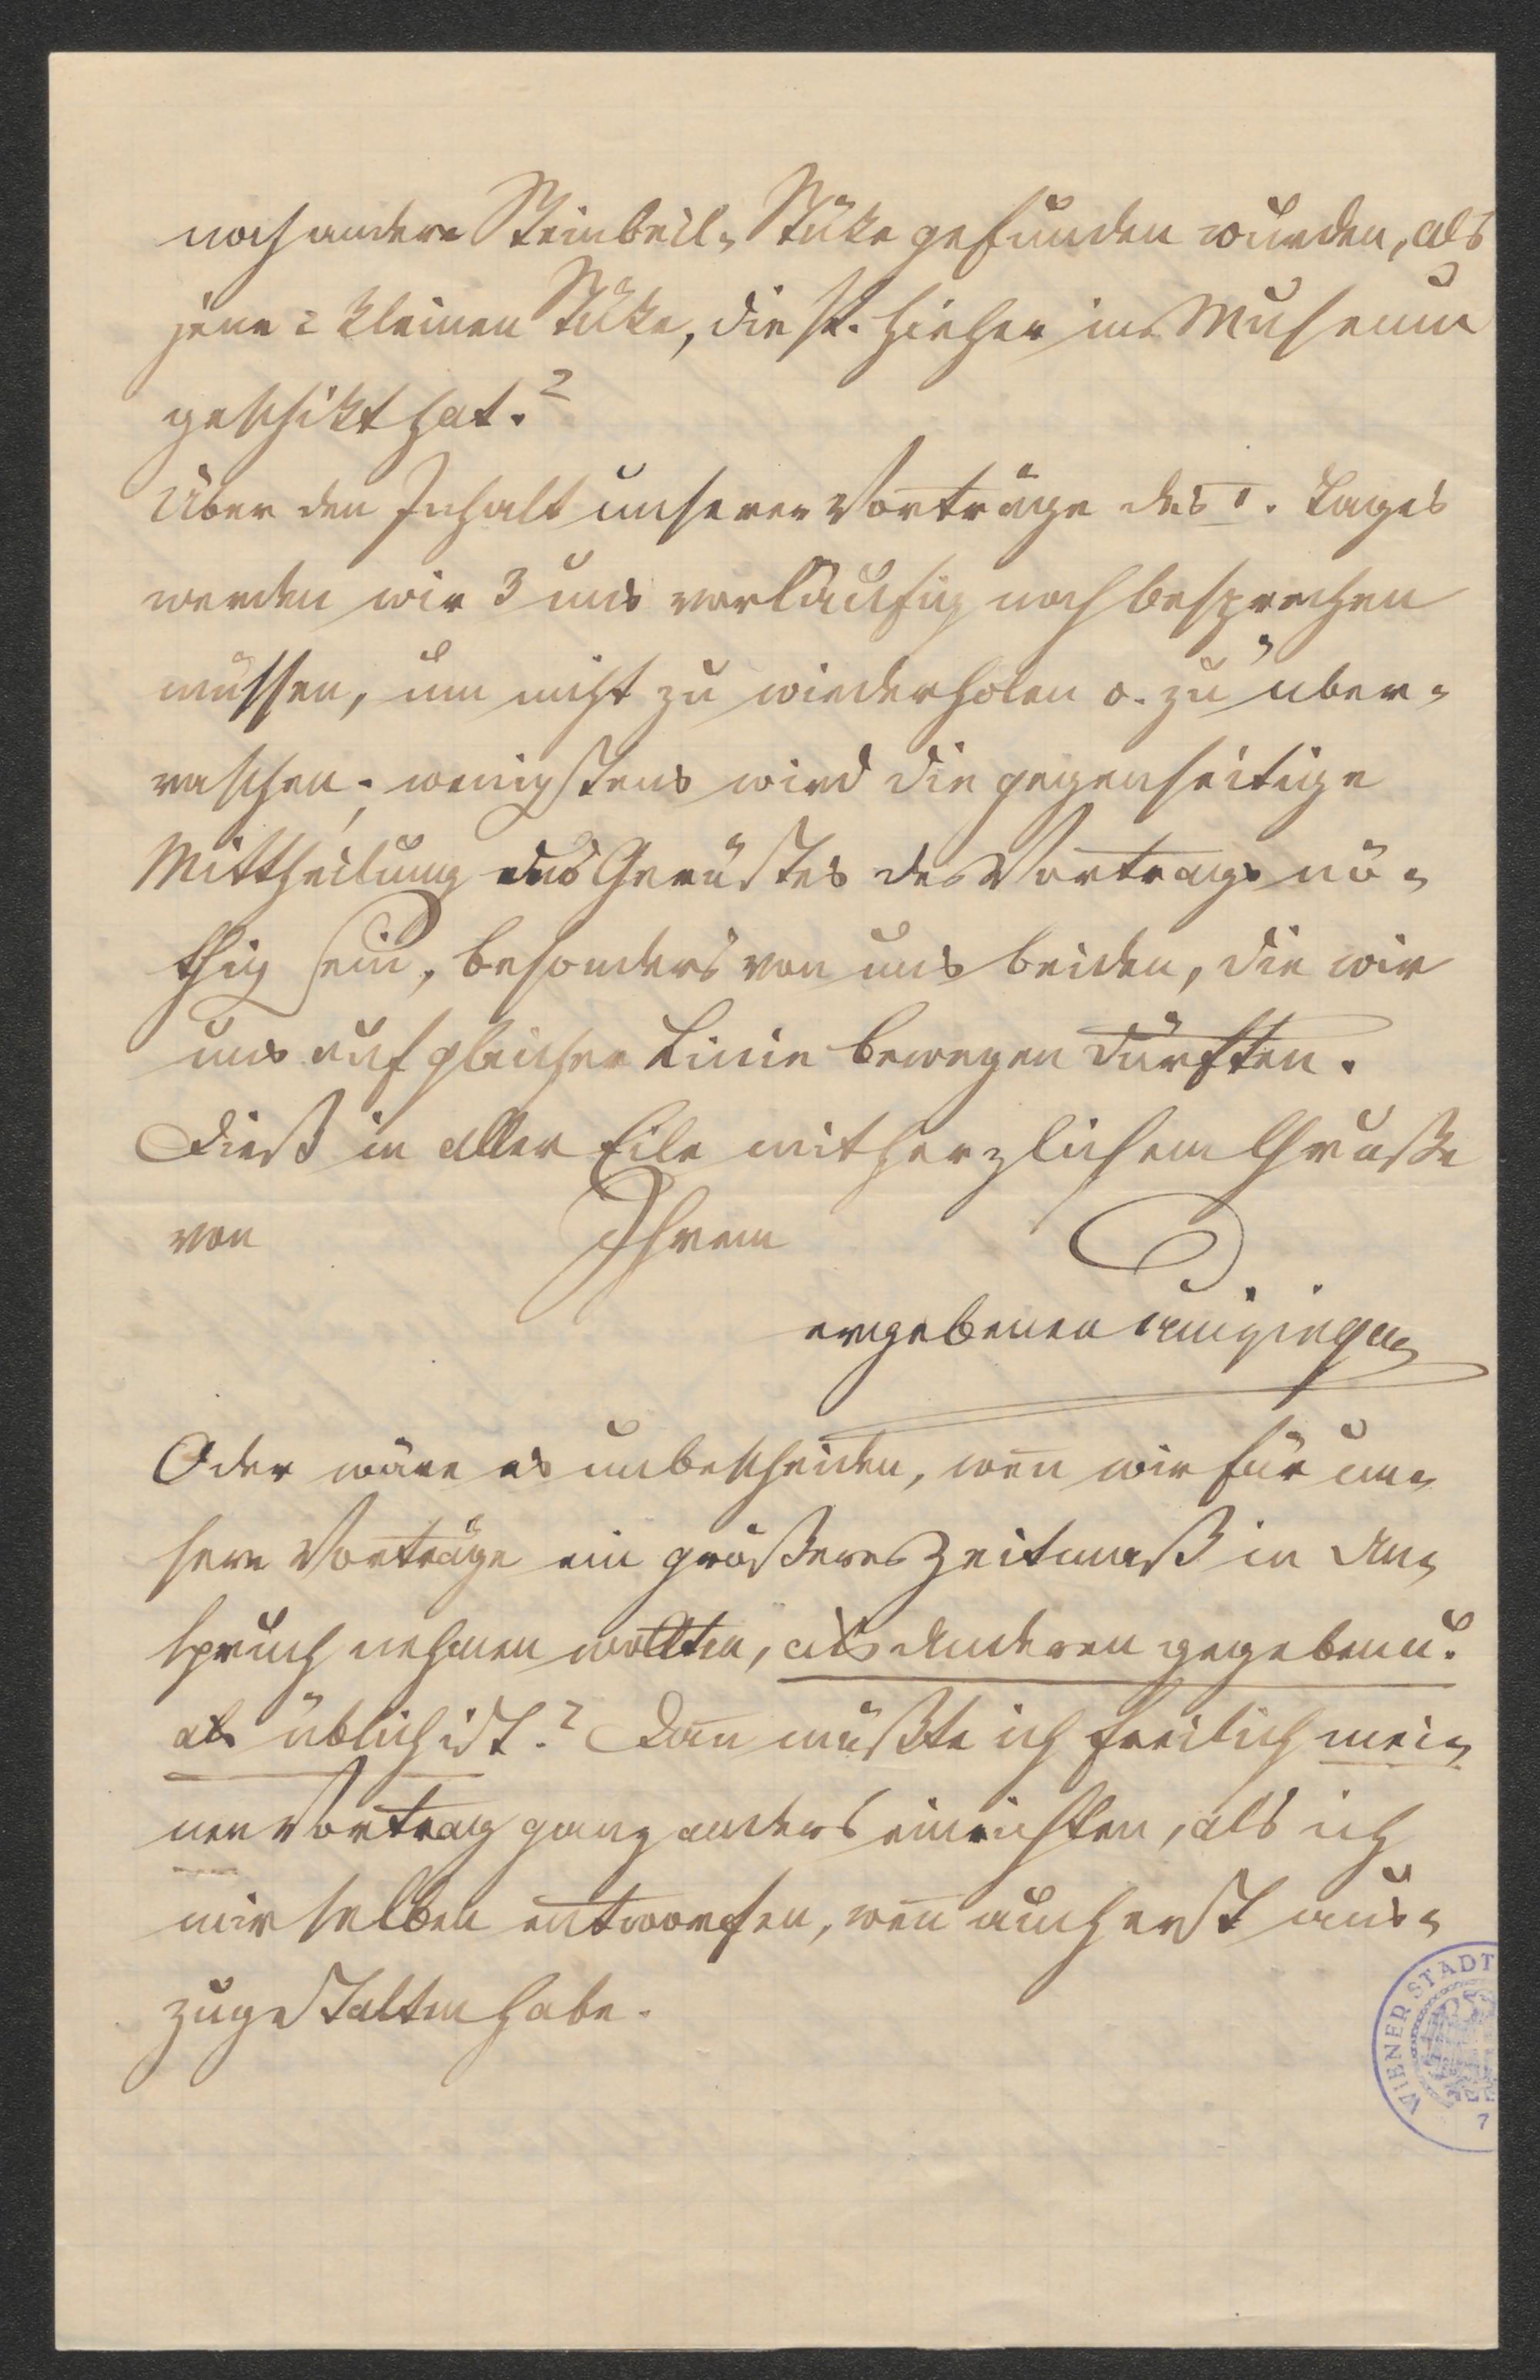 noch andere Steinbeil-Stüke gefunden wurden, als
jene 2 kleinen Stüke, die Sp. hieher ins Museum
geschikt hat.?
Über den Inhalt unserer Vorträge des I. Tages
werden wir 3 uns vorläufig noch besprechen
müssen, um nicht zu wiederholen o. zu über-
raschen; wenigstens wird die gegenseitige
Mittheilung des Gerüstes des Vortrags nö-
thig sein, besonders von uns beiden, die wir
uns auf gleicher Linie bewegen dürften.
Dieß in aller Eile mit herzlichem Gruße
von Ihrem
ergebenen
Oder wäre es unbescheiden, wen̄ wir für un-
sere Vorträge ein größeres Zeitmaß in An-
spruch nehmen wollten, als Anderen gegeben u.
als üblich ist.? Dan̄ müßte ich freilich mei-
nen Vortrag ganz anders einrichten, als ich
mir selben entworfen, wen̄ auch erst aus-
zugestalten habe.
WIENER STADT
7